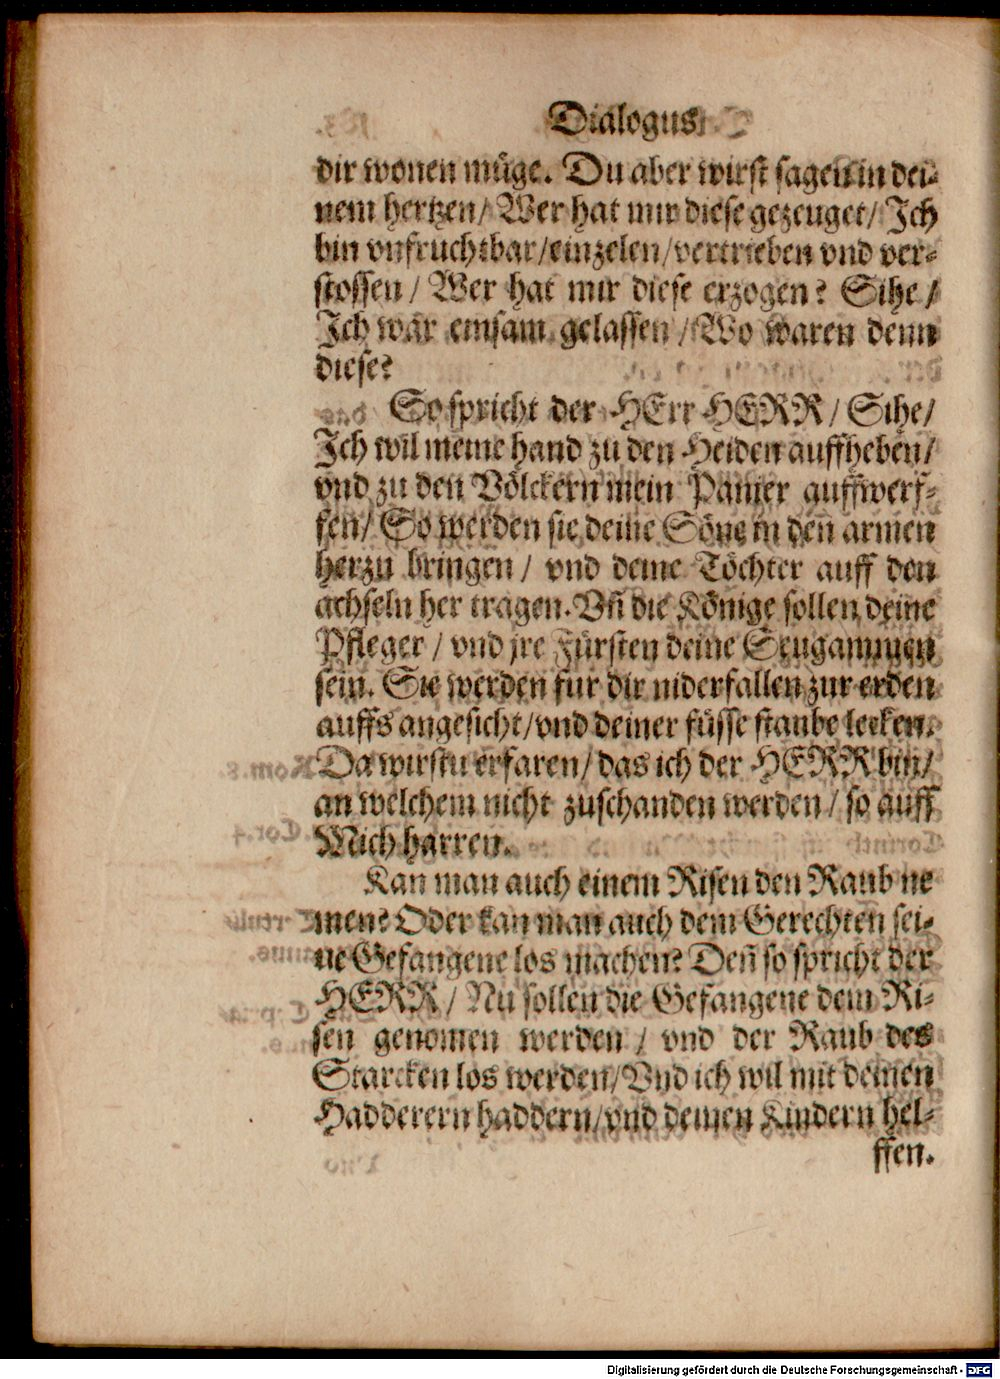 Dialogus
dir wonen müge. Du aber wirst sagen in dei-
nem hertzen/ Wer hat mir diese gezeuget/ Ich
bin vnfruchtbar/einzelen/vertrieben vnd ver-
stossen/ Wer hat mir diese erzogen? Sihe/
Ich war einsam gelassen/Wo waren denn
diese?
So spricht der HErr HERR/ Sihe/
Ich wil meine hand zu den Heiden auffheben/
vnd zu den Völckern mein Panier auffwerf-
fen/ So werden sie deine Söne in den armen
herzu bringen/ vnd deine Töchter auff den
achseln her tragen. Vñ die Könige sollen deine
Pfleger/ vnd jre Fürsten deine Seugammen
sein. Sie werden fur dir niderfallen zur erden
auffs angesicht/vnd deiner füsse staube lecken.
Da wirstu erfaren/das ich der HERR bin/
an welchem nicht zuschanden werden/ so auff
Mich harren.
Kan man auch einem Risen den Raub ne
men? Oder kan man auch dem Gerechten sei-
ne Gefangene los machen? Deñ so spricht der
HERR/ Nu sollen die Gefangene dem Ri-
sen genomen werden/ vnd der Raub des
Starcken los werden/Vnd ich wil mit deinen
Hadderern haddern/vnd deinen Kindern hel-
ffen.
Digitalisierung gefördert durch die Deutsche Forschungsgemeinschaft - DFG